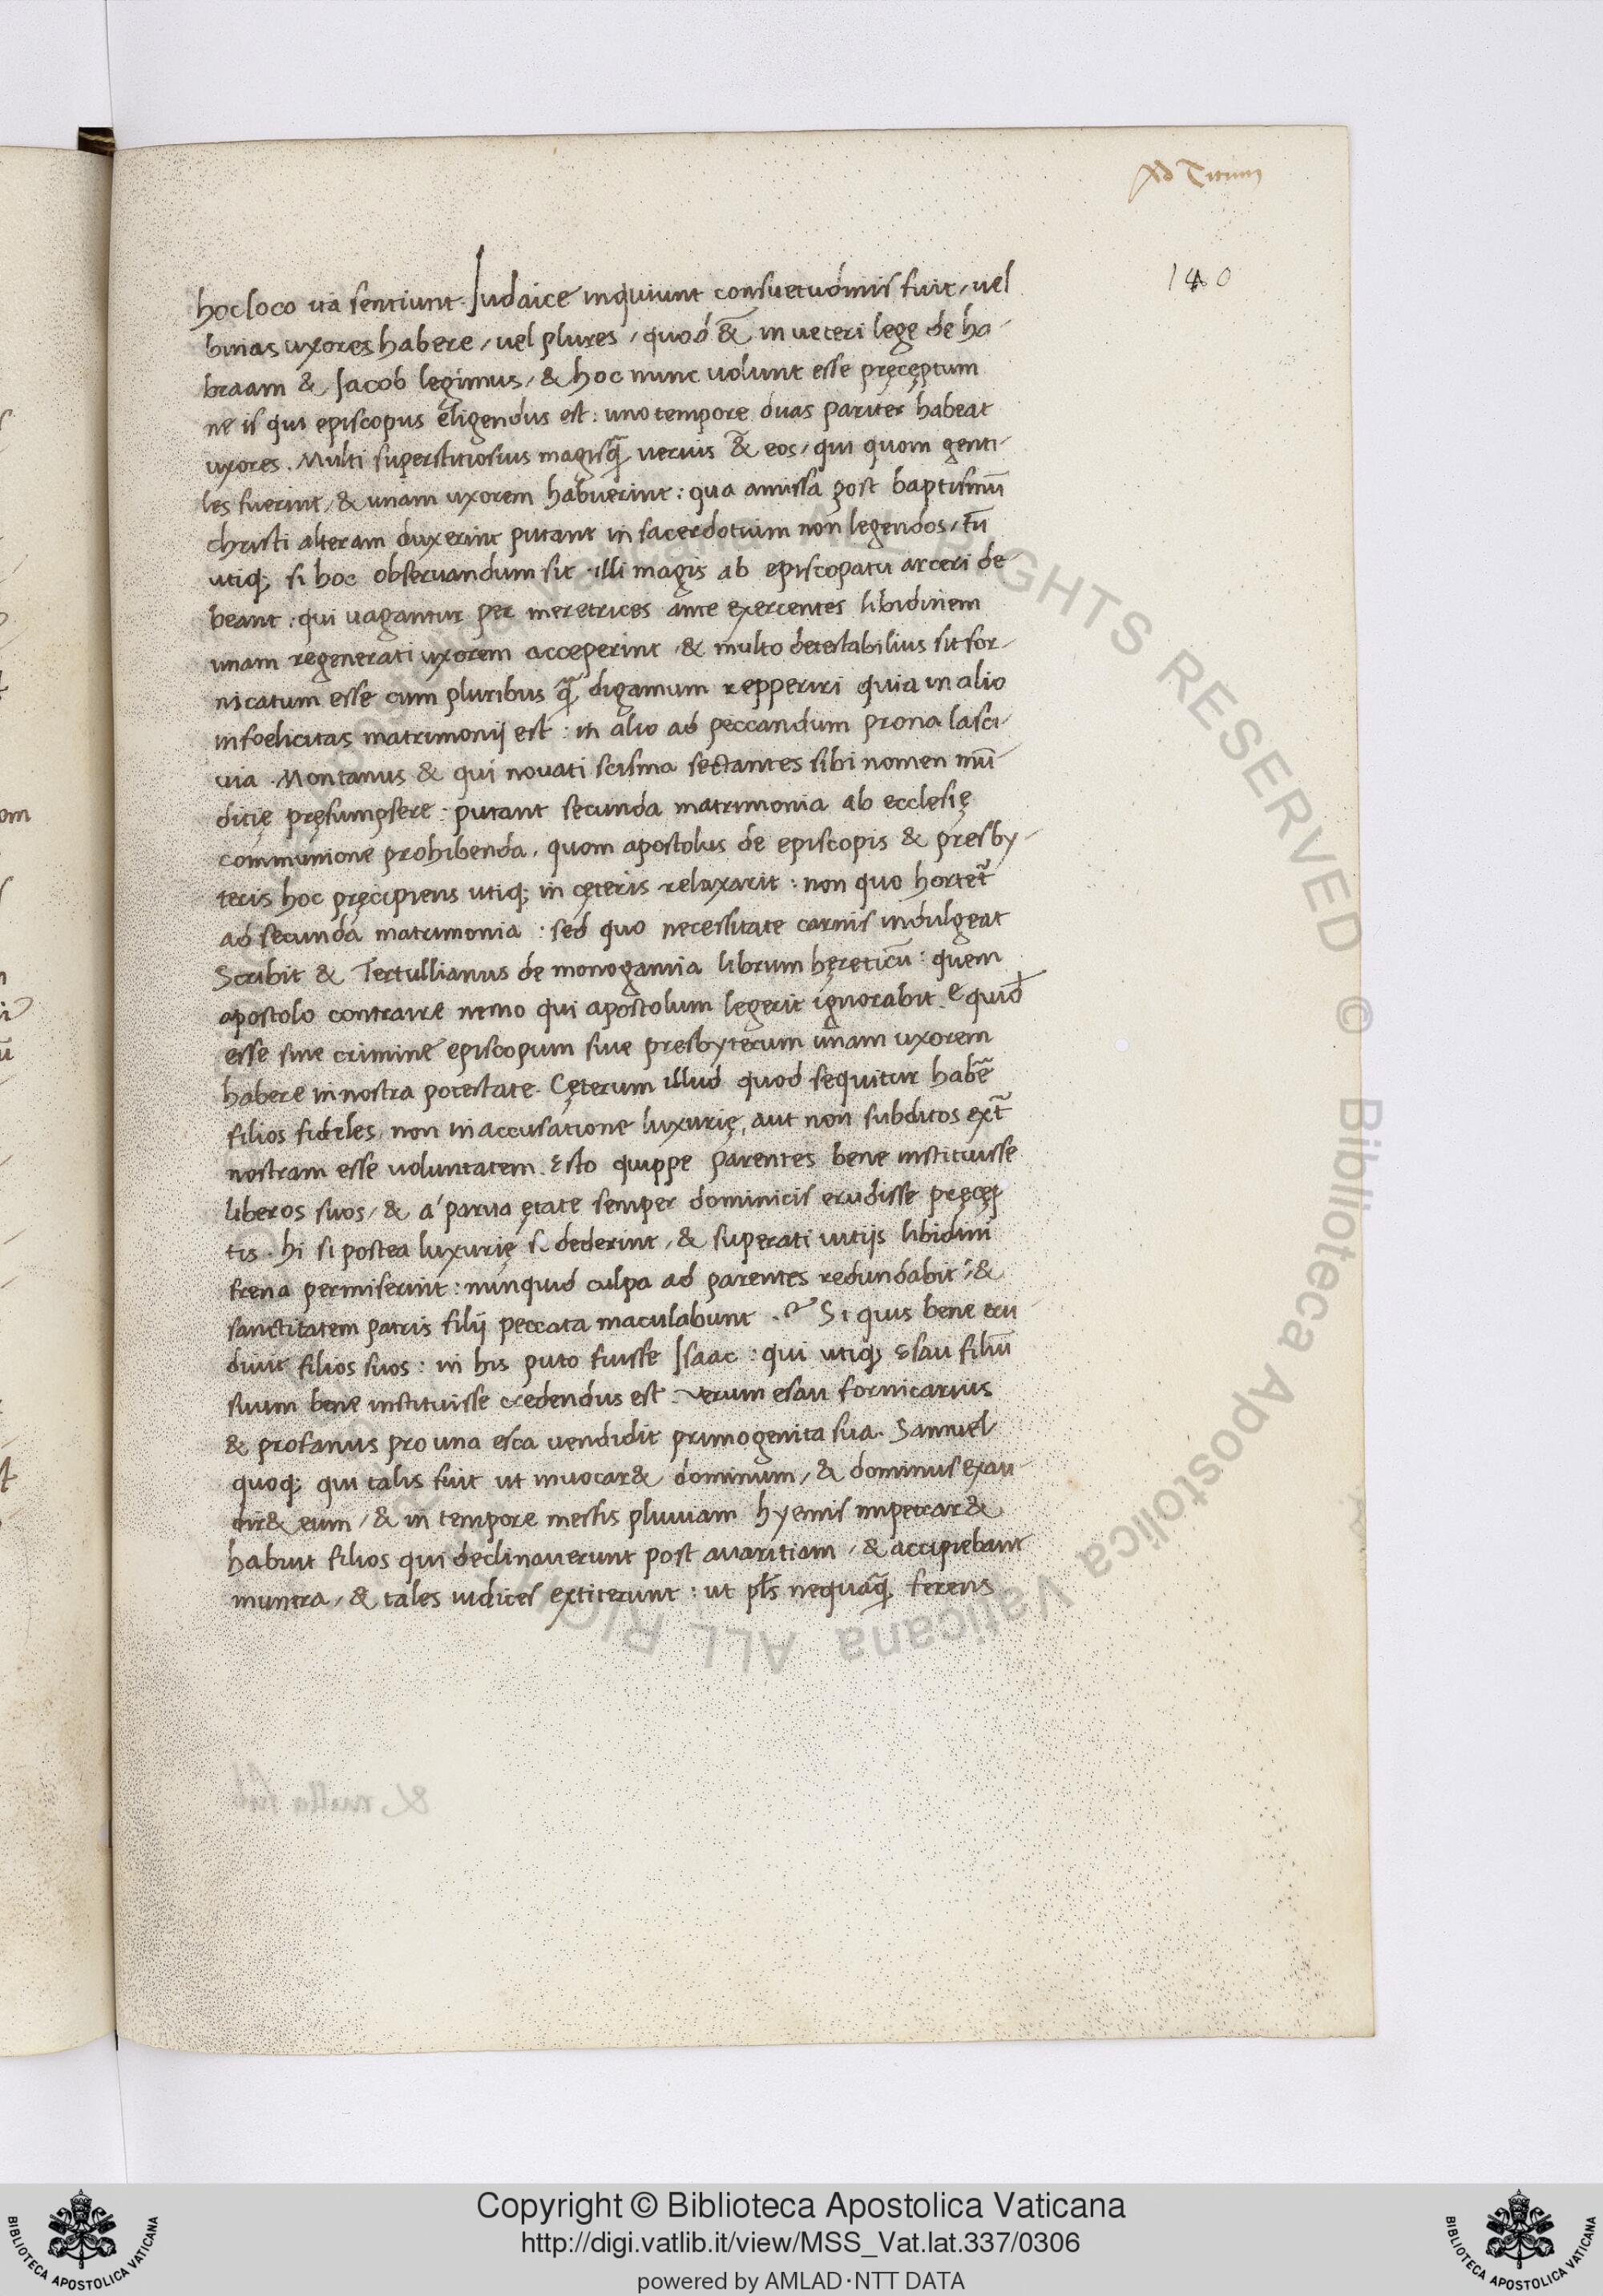 Ad Titum
140
hoc loco ita sentiunt. Iudaice inquiunt consuetudinis fuit, vel
binas uxores habere, vel plures, quod & in veteri lege de ha-
braam & Iacob legimus, & hoc nunc volunt esse pręcęptum
ne is qui episcopus eligendus est: uno tempore duas pariter habeat
uxores. Multi superstitiosius magisq̃ verius & eos, qui quom genti-
les fuerint, & unam uxorem habuerint: qua amissa post baptismũ
christi alteram duxerint putant in sacerdotium non legendos, tũ
utiq; si hoc observandum sit. illi magis ab episcopatu arceri de-
beant: qui vagantur per meretrices ante exercentes libidinem
unam regenerati uxorem acceperint, & multo detestabilius sit for-
nicatum esse cum pluribus q̃ digamum repperiri quia in alio
infoelicitas matrimonij est: in alio ad peccandum prona lasci-
via. Montanus & qui novati scisma sectantes sibi nomen mũ-
ditię pręsumpsere: putant secunda matrimonia ab ecclesię
communione prohibenda, quom apostolus de episcopis & presby-
teris hoc pręcipiens utiq; in cęteris relaxarit: non quo hortet᷑
ad secunda matrimonia: sed quo necessitate carnis indulgeat
Scribit & Tertullianus de monogamia librum hęreticũ: quem
apostolo contraire nemo qui apostolum legerit ignorabit. e quid
esse sine crimine episcopum sive presbyterum unam uxorem
habere in nostra potestate. Cęterum illud quod sequitur habẽ
filios fideles, non in accusatione luxurię, aut non subditos ext᷑
nostram esse voluntatem. Esto quippe parentes bene instituisse
liberos suos, & a' parva ętate semper dominicis erudisse pręcęp
tis. hi si postea luxurię se dederint, & superati vitijs libidini
frena permiserint: nunquid culpa ad parentes redundabit, &
sanctitatem patris filij peccata maculabunt.? Si quis bene eru
divit filios suos: in his puto fuisse Isaac: qui utiq; Esau filiũ
suum bene instituisse credendus est. Verum esau fornicarius
& profanus pro una esca vendidit primogenita sua. Samuel
quoq; qui talis fuit ut invocar& dominum, & dominus exau
dir& eum, & in tempore messis pluviam hyemis impetrar&
habuit filios qui declinaverunt post avaritiam, & accipiebant
munera, & tales iudices extiterunt: ut pl̃s nequaq̃ ferens
Copyright © Biblioteca Apostolica Vaticana
http://digi.vatlib.it/view/MSS_Vat.lat.337/0306
powered by AMLAD·NTT DATA